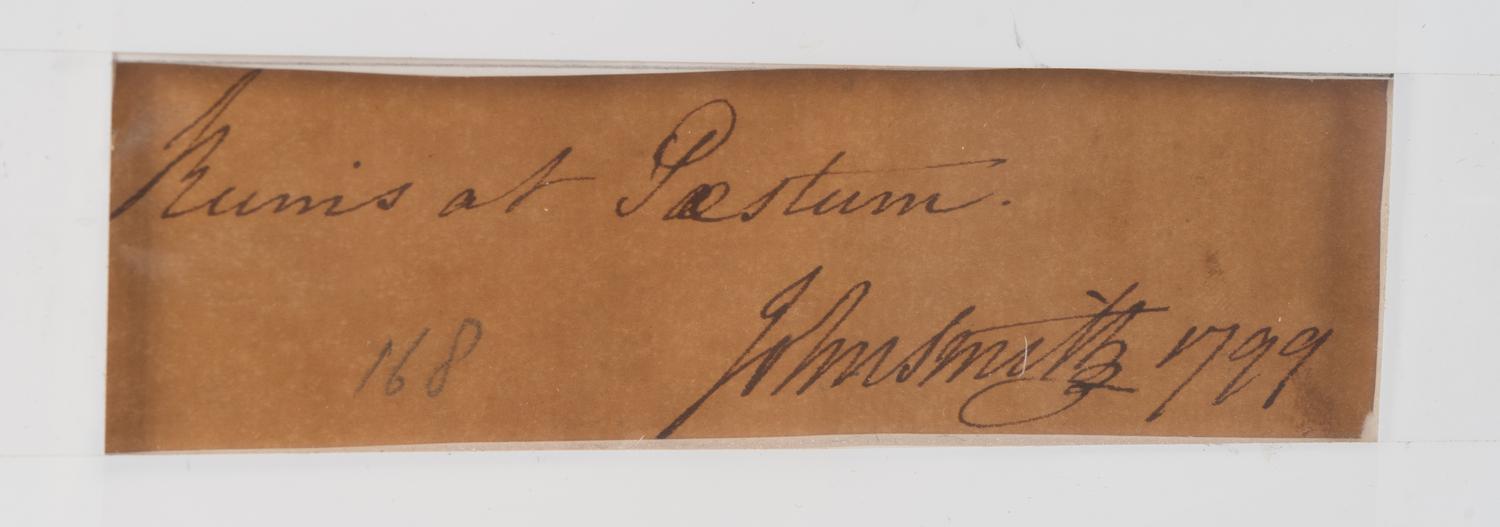 Ruins at Pæstum.
168
John Smith 1799